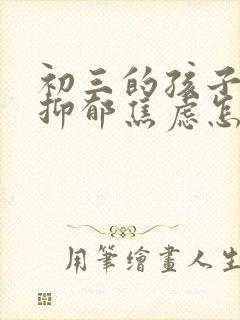 初三的孩子
抑郁焦虑怎
用筆繪畫人生